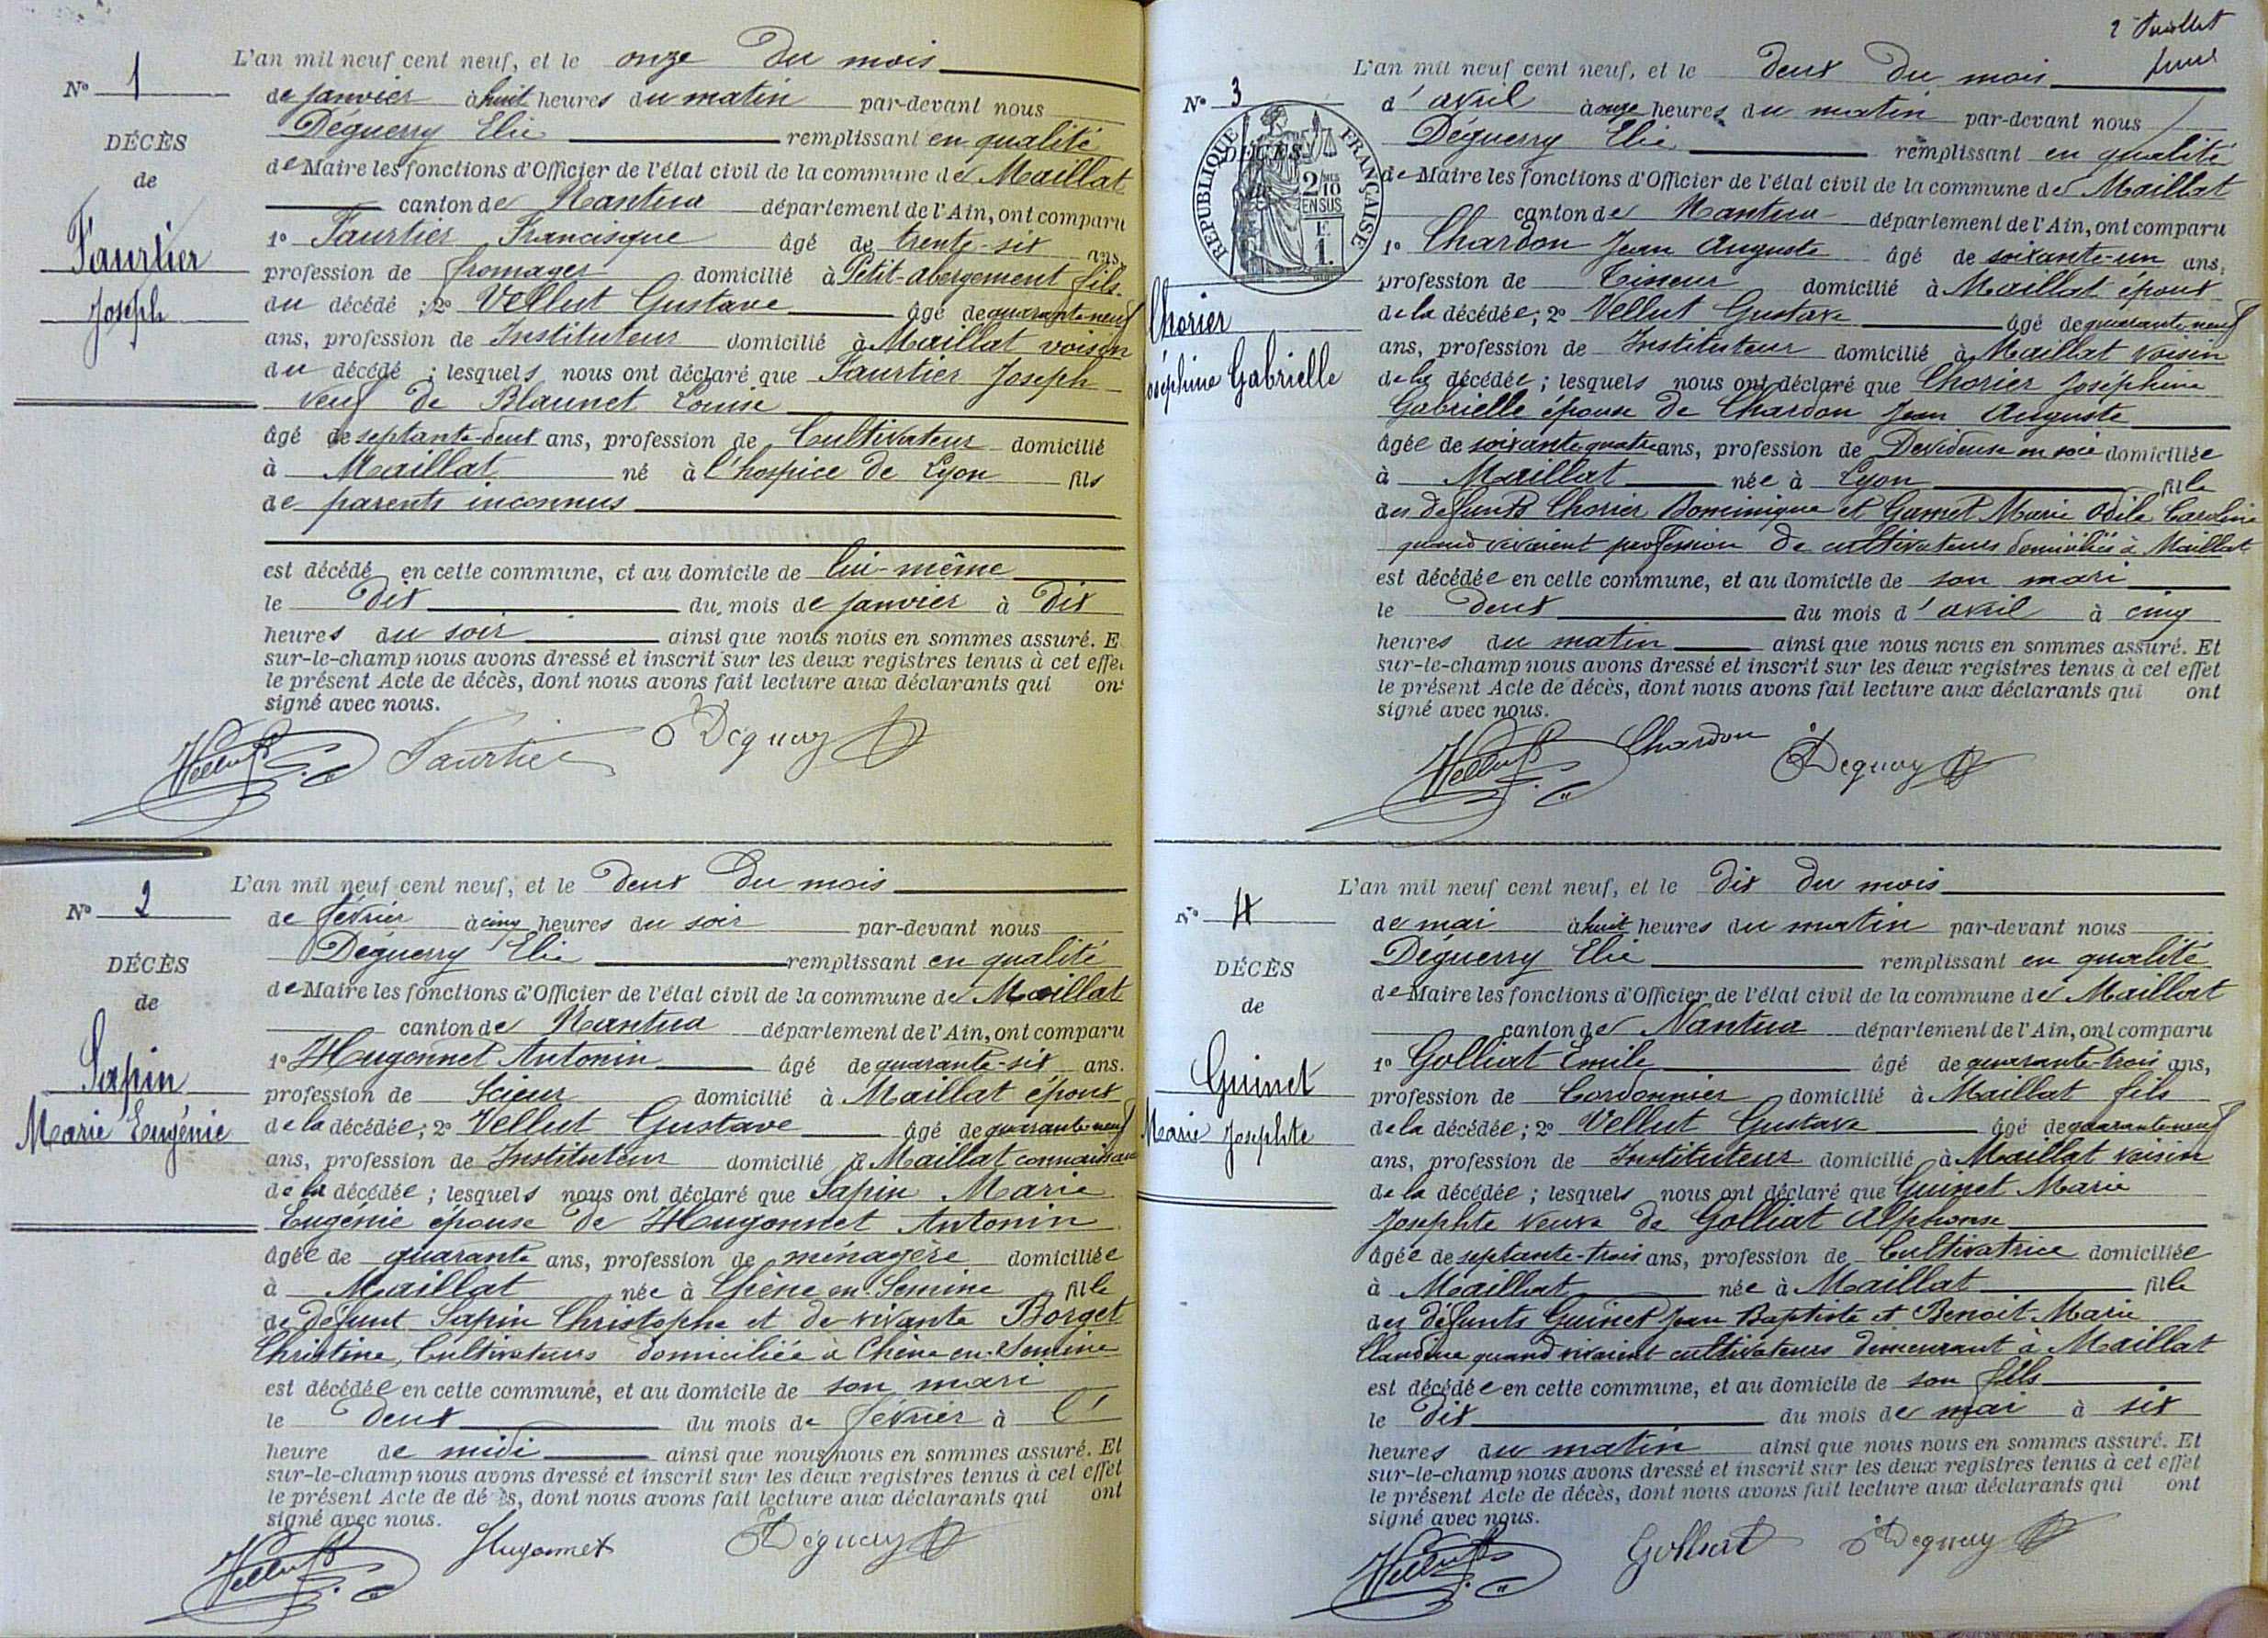 N° 1
DÉCÈS
de
Faurlier
Joseph
L'an mil neuf cent neuf, et le onze du mois
de janvier à huit heures du matin par-devant nous
Déguerry Elie remplissant en qualité
de Maire les fonctions d'Officier de l'état civil de la commune de Maillat
canton de Nantua département de l'Ain, ont comparu
1° Faurtier Francisque âgé de trente-six ans,
profession de fromager domicilié à Petit-abergement fils
du décédé ; 2° Vellut Gustave âgé de quarante neuf
ans, profession de Instituteur domicilié à Maillat voisin
du décédé ; lesquels nous ont déclaré que Faurtier Joseph
veuf de Blaunet Louise
âgé de septante-deux ans, profession de Cultivateur domicilié
à Maillat né à l'hospice de Lyon fils
de parents inconnus
est décédé en cette commune, et au domicile de lui-même
le dix du mois de janvier à dix
heures du soir ainsi que nous nous en sommes assuré. E
sur-le-champ nous avons dressé et inscrit sur les deux registres tenus à cet effe
le présent Acte de décès, dont nous avons fait lecture aux déclarants qui on
signé avec nous.
Vellut Faurtier Deguerry
N° 2
DÉCÈS
de
Sapin
Marie Eugénie
L'an mil neuf cent neuf, et le deux du mois
de février à cinq heures du soir par-devant nous
Déguerry Elie remplissant en qualité
de Maire les fonctions d'Officier de l'état civil de la commune de Maillat
canton de Nantua département de l'Ain, ont comparu
1° Hugonnet Antonin âgé de quarante-six ans.
profession de Scieur domicilié à Maillat époux
de la décédée ; 2° Vellut Gustave âgé de quarante neuf
ans, profession de Instituteur domicilié à Maillat connaissance
de la décédée ; lesquels nous ont déclaré que Sapin Marie
Eugénie épouse de Hugonnet Antonin
âgée de quarante ans, profession de ménagère domiciliée
à Maillat née à Chêne en Semine fille
de défunt Sapin Christophe et de vivante Borget
Christine, Cultivateurs domiciliée à Chêne en Semine
est décédée en cette commune, et au domicile de son mari
le deux du mois de février à l'
heure de midi ainsi que nous nous en sommes assuré. Et
sur-le-champ nous avons dressé et inscrit sur les deux registres tenus à cet effet
le présent Acte de dé ès, dont nous avons fait lecture aux déclarants qui ont
signé avec nous.
Vellut Hugonnet Deguerry
2e feuillet
N° 3
RÉPUBLIQUE FRANÇAISE
DÉCÈS
de
2/10
EN SUS
F.
1.
Chorier
Joséphine Gabrielle
L'an mil neuf cent neuf, et le deux du mois
d'avril à onze heures du matin par-devant nous
Déguerry Elie remplissant en qualité
de Maire les fonctions d'Officier de l'état civil de la commune de Maillat
canton de Nantua département de l'Ain, ont comparu
1° Chardon Jean Auguste âgé de soixante-un ans,
profession de Tisseur domicilié à Maillat époux
de la décédée ; 2° Vellut Gustave âgé de quarante neuf
ans, profession de Instituteur domicilié à Maillat voisin
de la décédée ; lesquels nous ont déclaré que Chorier Joséphine
Gabrielle épouse de Chardon Jean Auguste
âgée de soixante quatre ans, profession de Dévideuse en soie domiciliée
à Maillat née à Lyon fille
des défunts Chorier Dominique et Gamet Marie Odile Caroline
quand vivaient profession de cultivateurs domiciliés à Maillat
est décédée en cette commune, et au domicile de son mari
le deux du mois d'avril à cinq
heures du matin ainsi que nous nous en sommes assuré. Et
sur-le-champ nous avons dressé et inscrit sur les deux registres tenus à cet effet
le présent Acte de décès, dont nous avons fait lecture aux déclarants qui ont
signé avec nous.
Vellut Chardon Deguerry
N° 4
DÉCÈS
de
Guinet
Marie Josephte
L'an mil neuf cent neuf, et le dix du mois
de mai à huit heures du matin par-devant nous
Déguerry Elie remplissant en qualité
de Maire les fonctions d'Officier de l'état civil de la commune de Maillat
canton de Nantua département de l'Ain, ont comparu
1° Golliat Emile âgé de quarante-trois ans,
profession de Cordonnier domicilié à Maillat fils
de la décédée ; 2° Vellut Gustave âgé de quarante neuf
ans, profession de Instituteur domicilié à Maillat voisin
de la décédée ; lesquels nous ont déclaré que Guinet Marie
Josephte veuve de Golliat Alphonse
âgée de septante-trois ans, profession de Cultivatrice domiciliée
à Maillat née à Maillat fille
des défunts Guinet Jean Baptiste et Benoit Marie
Claudine quand vivaient cultivateurs demeurant à Maillat
est décédée en cette commune, et au domicile de son fils
le dix du mois de mai à six
heures du matin ainsi que nous nous en sommes assuré. Et
sur-le-champ nous avons dressé et inscrit sur les deux registres tenus à cet effet
le présent Acte de décès, dont nous avons fait lecture aux déclarants qui ont
signé avec nous.
Vellut Golliat Deguerry